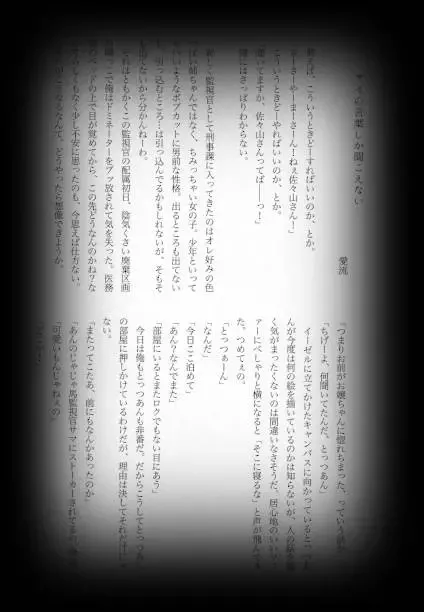 アイの言葉しか聞こえない
愛流
例えば、こういうときどーすればいいのか、とか。
「さーさーやーまーさーん！ねぇ佐々山さん！」
こういうときどーやればいいのか、とか。
聞いてますか、佐々山さんってばーっ！」
俺にはさっぱりわからない。
新しく監視官として刑事課に入ってきたのはオレ好みの色
っぽい姉ちゃんではなく、ちみっちゃい女の子。少年といって
いいようなボブカットに男前な性格。出るところも出てない
し、引っ込むところ…は引っ込んでるかもしれないが、そもそ
出てないから分かんねーわ。
それはともかくこの監視官の配属初日、陰気くさい廃棄区画
って俺はドミネーターをブッ放されて気を失った。医務
のベッドの上で目が覚めてから、この先どうなんのかね？な
らしくもなく少し不安に思ったのも、今思えば仕方ない。
なことになるなんて、どうやったら想像できようか。
「つまりお前がお嬢ちゃんに惚れちまった、っていう
「ちげーよ、何聞いてたんだ、とっつあん」
イーゼルに立てかけたキャンバスに向かっていると
んが今度は何の絵を描いているのかは知らないが、人の話を
く気がまったくないのは間違いなさそうだ。居心地のいい
ァーにべしゃりと横になると「そこに寝るな」と声が飛んで
た。つめてぇの。
「とっつぁーん」
「なんだ」
「今日ここ泊めて」
「あん？なんでまた」
「部屋にいるとまたロクでもない目にあう」
今日は俺もとっつあんも非番だ。だからこうしてとっつあ
の部屋に押しかけているわけだが、理由は決してそれだけじ
ない。
「またってこたあ、前にもなんかあったのか」
「あんのじゃじゃ馬監視官サマにストーカーされてるの
「可愛いもんじゃねぇの